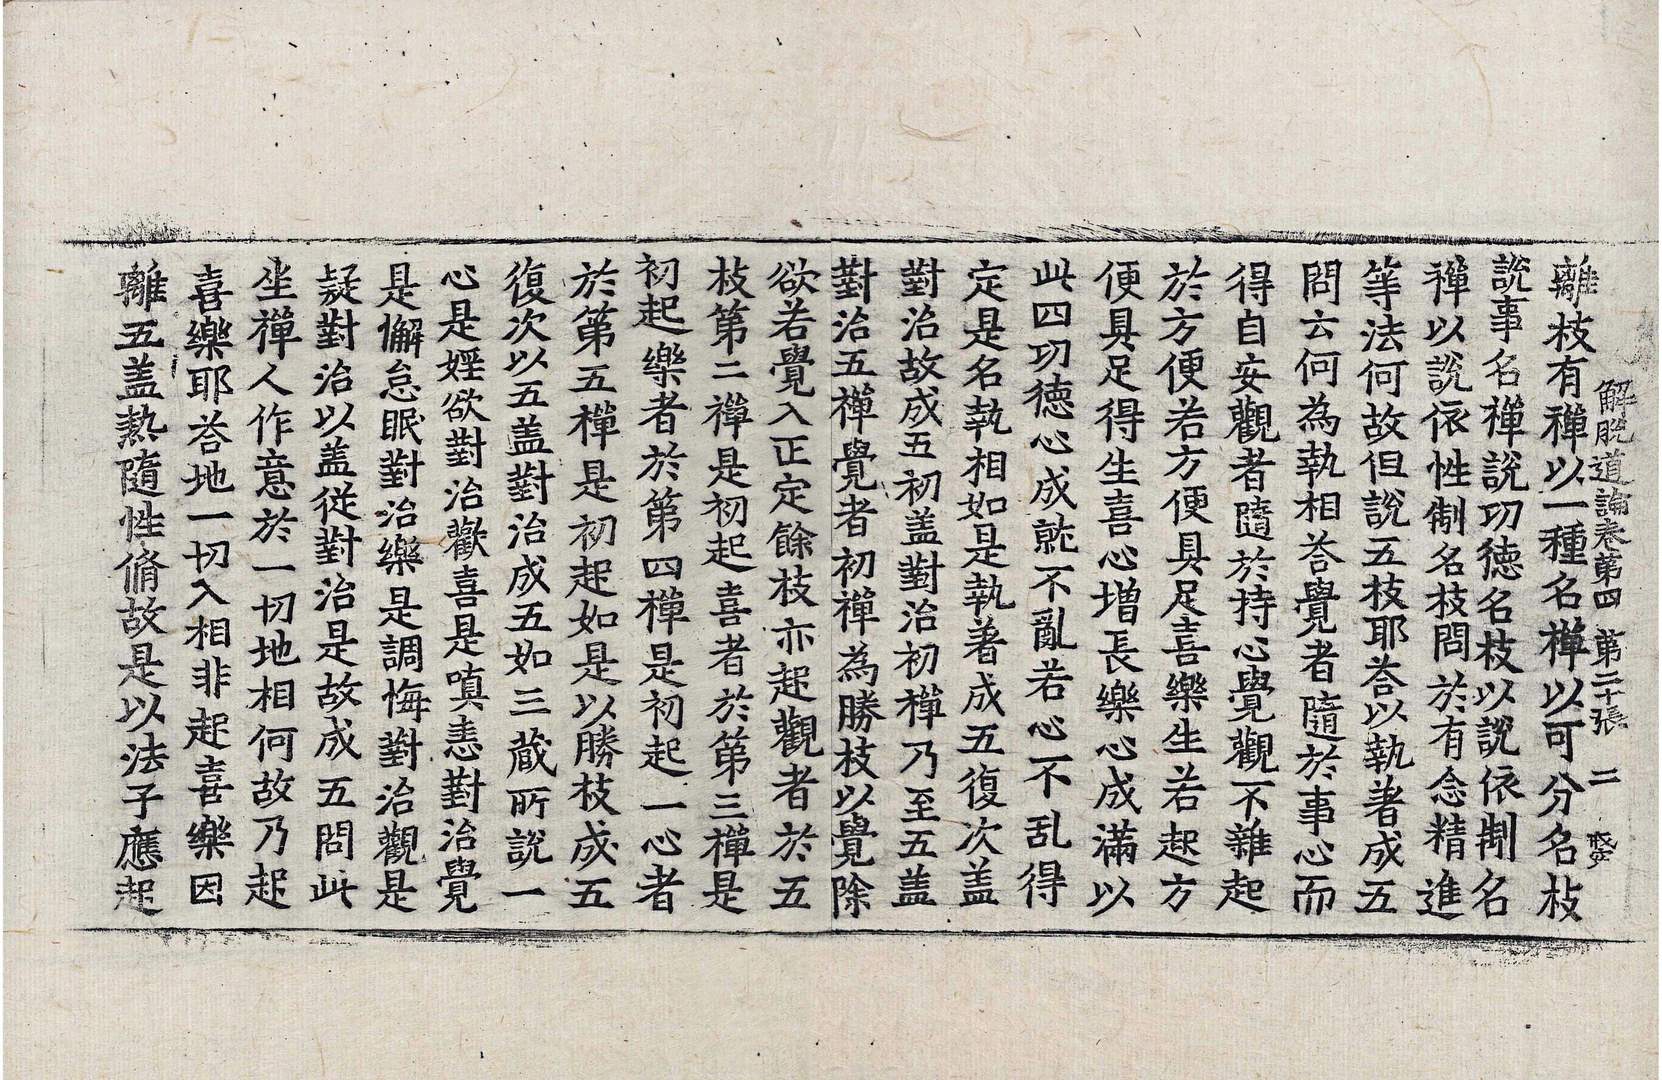 解脫道論卷第四　第二十張　二
離枝有禪以一種名禪以可分名枝
說事名禪說功德名枝以說依制名
禪以說依性制名枝問於有念精進
等法何故但說五枝耶荅以執著成五
問云何為執相荅覺者隨於事心而
得自安觀者隨於持心覺觀不雜起
於方便若方便具足喜樂生若起方
便具足得生喜心增長樂心成滿以
此四功德心成就不亂若心不乱得
定是名執相如是執著成五復次盖
對治故成五初盖對治初禪乃至五盖
對治五禪覺者初禪為勝枝以覺除
欲若覺入正定餘枝亦起觀者於五
枝第二禪是初起喜者於第三禪是
初起樂者於第四禪是初起一心者
於第五禪是初起如是以勝枝成五
復次以五盖對治成五如三藏所說一
心是婬欲對治歡喜是嗔恚對治覺
是懈怠眠對治樂是調悔對治觀是
疑對治以盖從對治是故成五問此
坐禪人作意於一切地相何故乃起
喜樂耶荅地一切入相非起喜樂因
離五盖熱隨性脩故是以法子應起